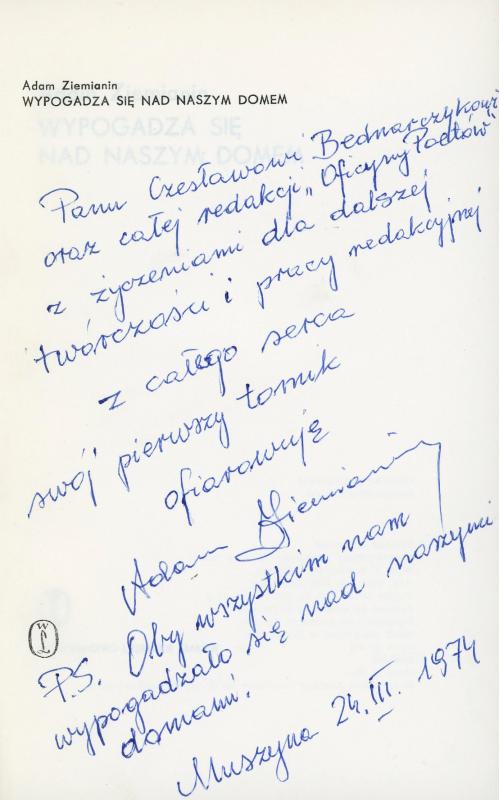 Adam Ziemianin
WYPOGADZA SIĘ NAD NASZYM DOMEM
Panu Czesławowi Bednarczykowi
oraz całej redakcji „Oficyny Poetów"
z życzeniami dla dalszej
twórczości i pracy redakcyjnej
z całego serca
swój pierwszy tomik
ofiarowuję
Adam Ziemianin
P.S. Oby wszystkim nam
wypogadzało się nad naszymi
domami!
Muszyna 24.III. 1974
WL